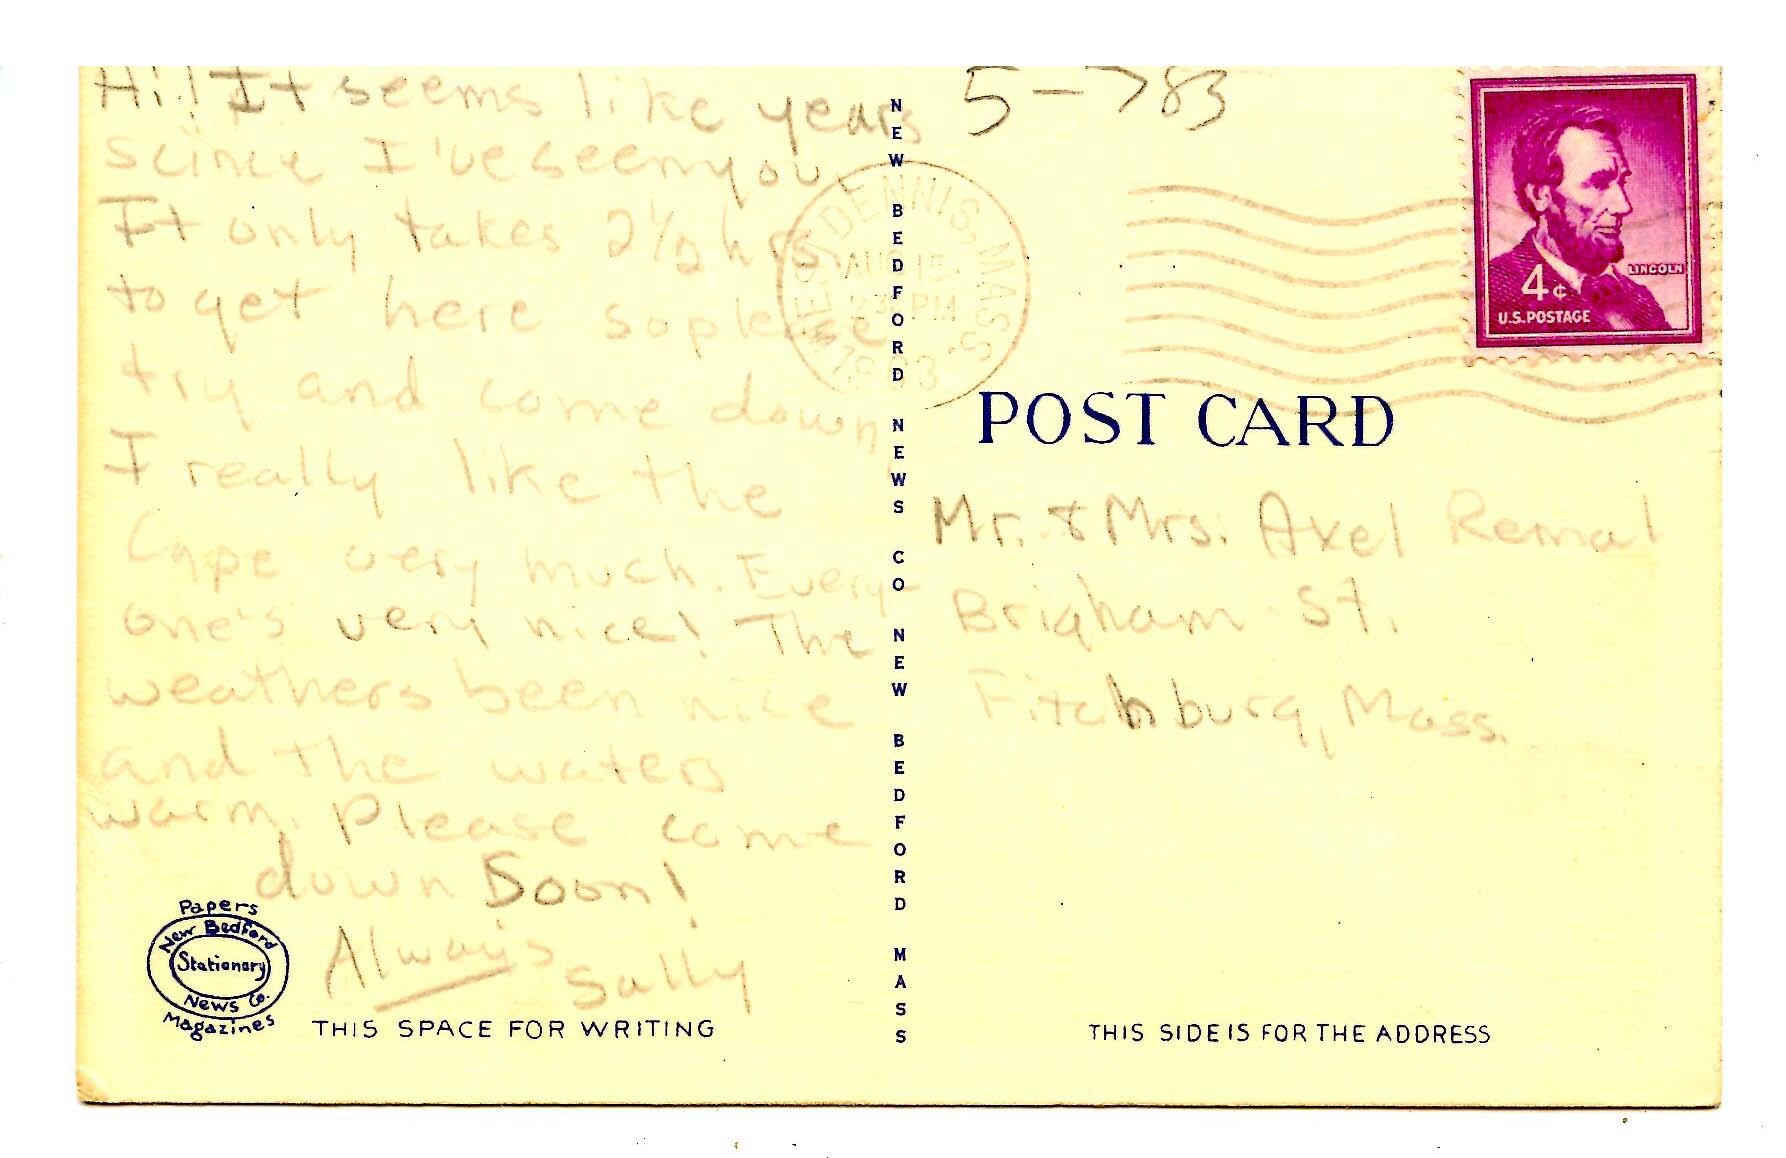 Hi! It seems like years
scince I've seen you.
It only takes 2½ hrs.
to get here so please
try and come down,
I really like the
Cape very much. Every-
one's very nice! The
weathers been nice
and the waters
warm. Please come
down Soon!
Always
Sally
Papers
New Bedford
Stationary
News Co.
Magazines
THIS SPACE FOR WRITING
NEW BEDFORD NEWS CO NEW BEDFORD MASS
5-783
WEST DENNIS, MASS.
AUG 15
PM
LINCOLN
4¢
U.S. POSTAGE
POST CARD
Mr. & Mrs. Axel Remal
Brigham St.
Fitchburg, Mass.
THIS SIDE IS FOR THE ADDRESS